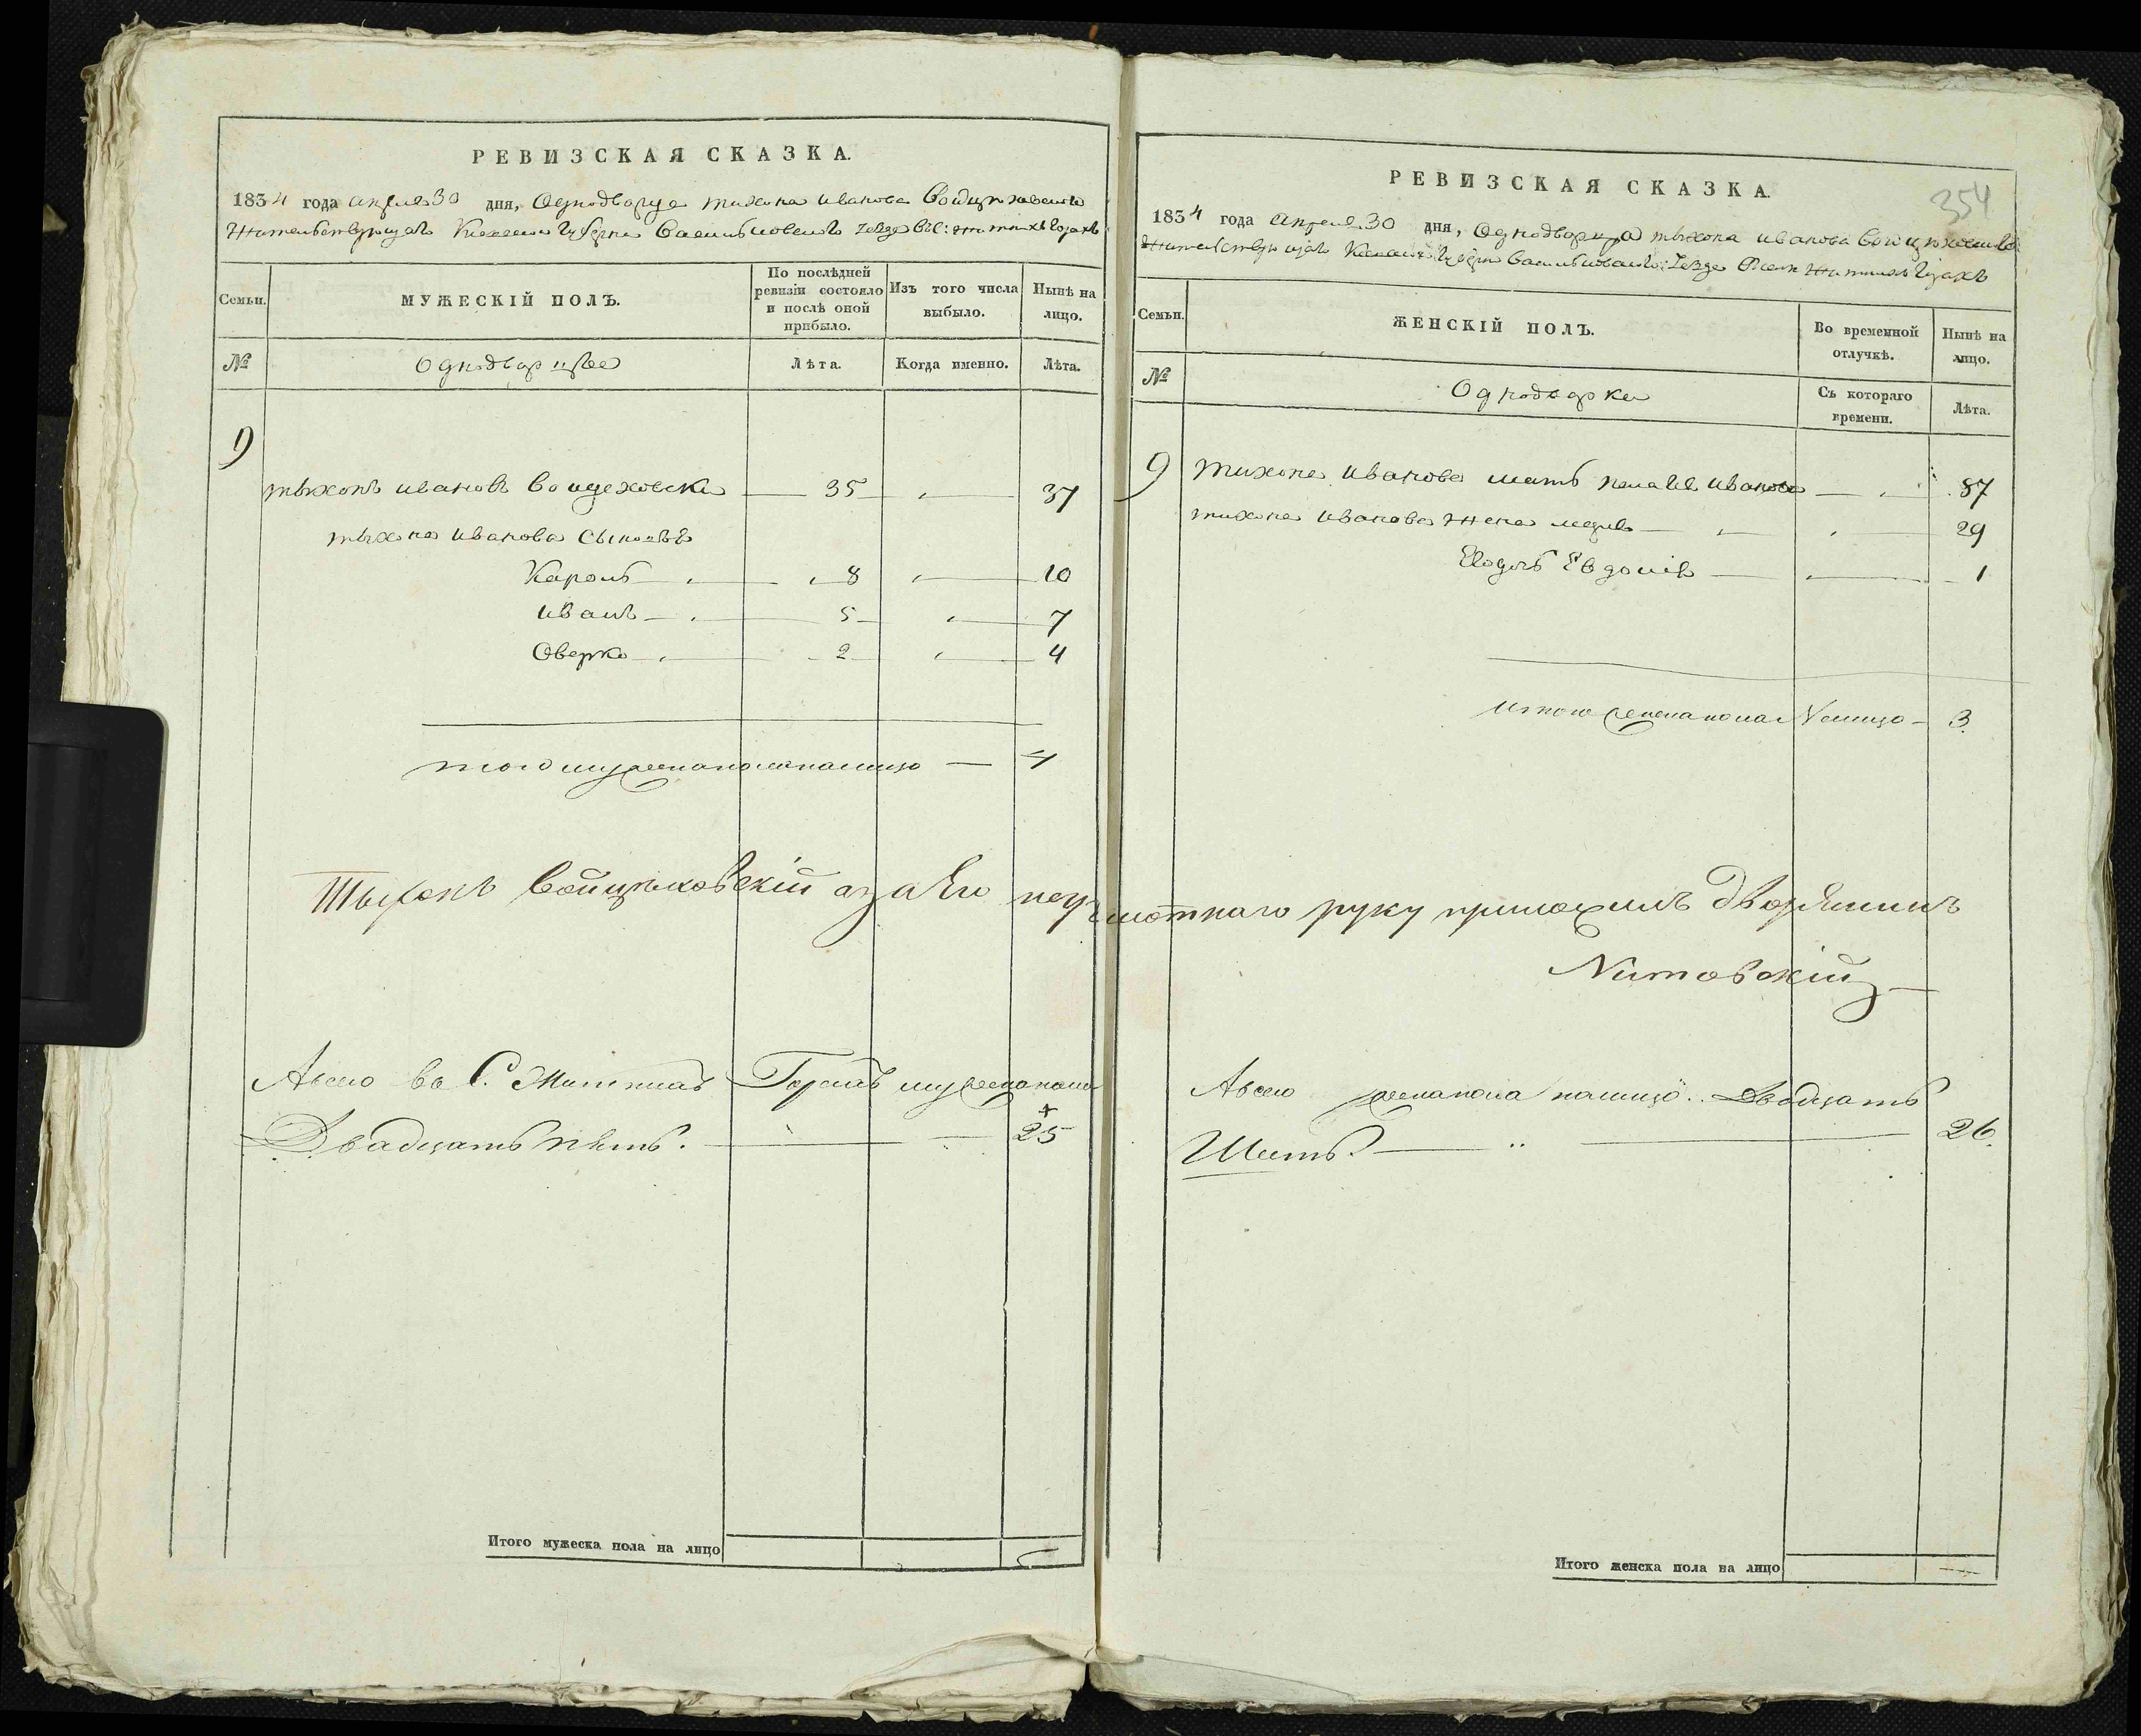 РЕВИЗСКАЯ СКАЗКА.
1834 года апреля 30 дня, Однодворца тихона иванова
Жительствующаго Киевской Губерни Васильковского уезда Вс: житнихъ Горахъ
Семьи. МУЖЕСКІЙ ПОЛЪ. По послѣдней ревизіи состояло и послѣ оной прибыло. Изъ того числа выбыло. Нынѣ на лицо.
№ Однодворцы Лѣта. Когда именно. Лѣта.
9
тыхонъ ивановъ воицеховски 35 37
тыхона иванова сыновья
Кароль 8 10
иванъ 5 7
Оверко 2 4
того мужеска пола налицо 4
Тыхонъ Войцѣховскій а за Его неграмотнаго руку приложилъ дворянинъ
Житовскій
Авсего въ С. Житнихъ Горахъ мужеска пола
Двадцать пять. 25
Итого мужеска пола на лицо
РЕВИЗСКАЯ СКАЗКА.
354
1834 года Апреля 30 дня, Однодворца тыхона иванова
Жительствующаго Киевской Губерни Васильковского уезда Вселе Житнихъ Горахъ
Семьи. ЖЕНСКІЙ ПОЛЪ. Во временной отлучкѣ. Нынѣ на лицо.
№ Однодворки Съ котораго времени. Лѣта.
9 тихона иванова мать иванова 87
тихона иванова жена 29
Евдоkія 1
итого женска пола налицо 3
Авсего женска пола налицо. Двадцать
Шеть. 26
Итого женска пола на лицо